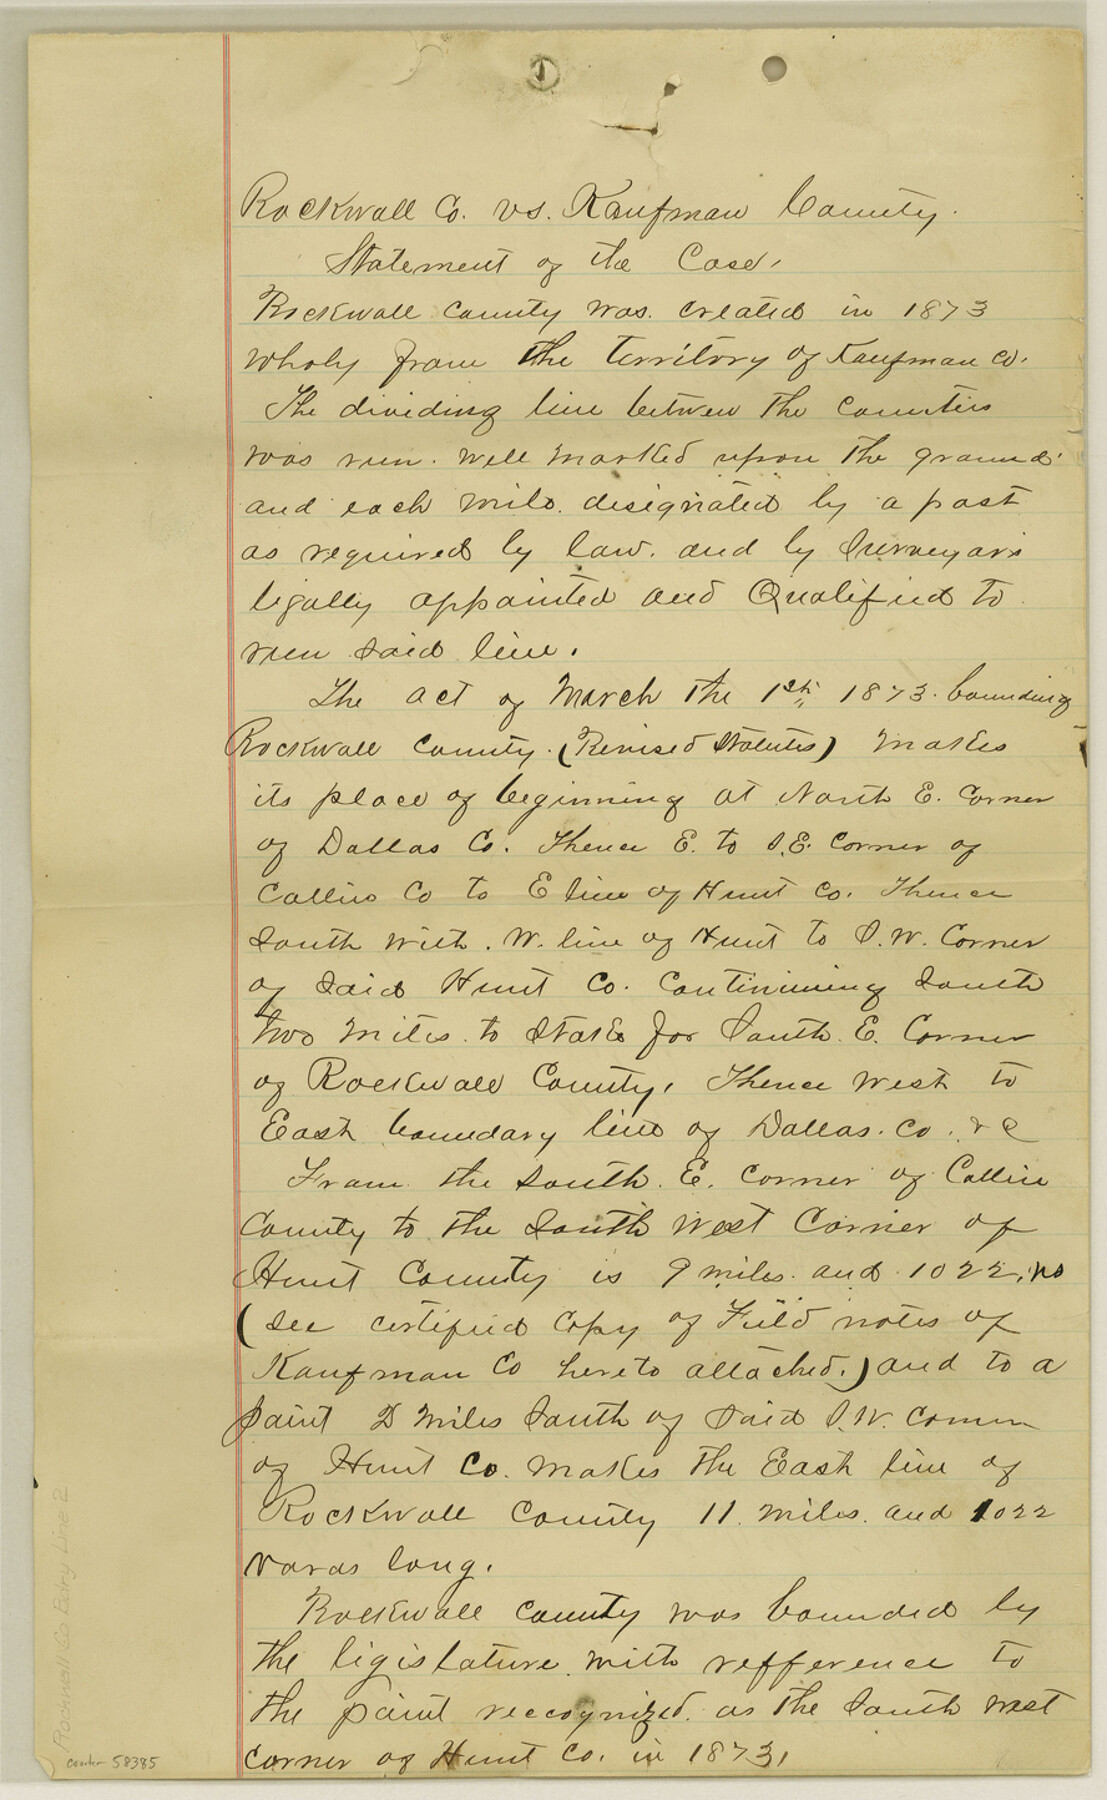 1
Rockwall Co. vs. Kaufman County.
Statement of the Case.
Rockwall County was created in 1873
wholy from the territory of Kaufman Co.
The dividing line between the Counties
was run. well marked upon the ground
and each mile designated by a post
as required by law. and by Surveyors
legally appointed and Qualified to
run said line.
The act of March the 1st, 1873. bounding
Rockwall County. (Revised Statutes) makes
its place of beginning at North E. Corner
of Dallas Co. Thence E. to S.E. Corner of
Collin Co to E line of Hunt Co. Thence
South with. W. line of Hunt to S.W. Corner
of said Hunt Co. Continuning South
two miles. to Stake for South. E. Corner
of Rockwall County. Thence west to
East boundary line of Dallas. Co. &c
From the South. E. Corner of Collin
County to the South West Corner of
Hunt County is 9 miles. and 1022. vs
(see certified Copy of Field notes of
Kaufman Co hereto attached.) and to a
point 2 miles South of said S.W. Corner
of Hunt Co. makes the East line of
Rockwall County 11. miles. and 1022
varas long.
Rockwall County was bounded by
the ligislature. with refference to
the point reecognized. as the South west
Corner of Hunt Co. in 1873.
Rockwall Co Bdry Line 2
counter 58385